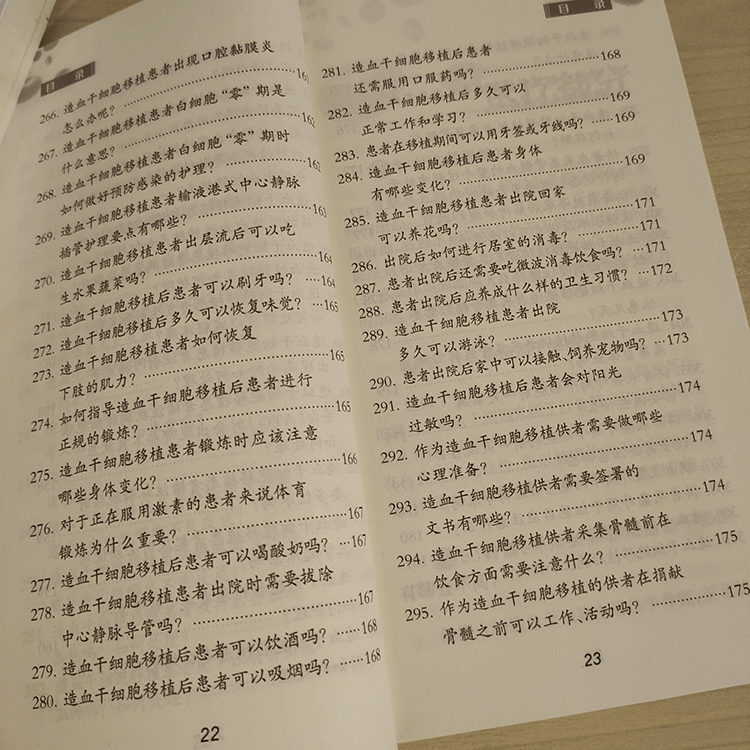 目 录
266. 造血干细胞移植患者出现口腔黏膜炎
怎么办呢? ……………………………………161
267. 造血干细胞移植患者白细胞“零”期是
什么意思? ……………………………………162
268. 造血干细胞移植患者白细胞“零”期时
如何做好预防感染的护理? …………………162
269. 造血干细胞移植患者输液港式中心静脉
插管护理要点有哪些? ………………………163
270. 造血干细胞移植患者出层流后可以吃
生水果蔬菜吗? ………………………………164
271. 造血干细胞移植后患者可以刷牙吗? ……164
272. 造血干细胞移植后多久可以恢复味觉? …165
273. 造血干细胞移植患者如何恢复
下肢的肌力? …………………………………165
274. 如何指导造血干细胞移植后患者进行
正规的锻炼? …………………………………165
275. 造血干细胞移植患者锻炼时应该注意
哪些身体变化? ………………………………166
276. 对于正在服用激素的患者来说体育
锻炼为什么重要? ……………………………167
277. 造血干细胞移植后患者可以喝酸奶吗? …167
278. 造血干细胞移植患者出院时需要拔除
中心静脉导管吗? ……………………………167
279. 造血干细胞移植后患者可以饮酒吗? ……168
280. 造血干细胞移植后患者可以吸烟吗? ……168
22
目 录
281. 造血干细胞移植后患者
还需服用口服药吗? …………………………168
282. 造血干细胞移植后多久可以
正常工作和学习? ……………………………169
283. 患者在移植期间可以用牙签或牙线吗? ……169
284. 造血干细胞移植后患者身体
有哪些变化? …………………………………169
285. 造血干细胞移植患者出院回家
可以养花吗? …………………………………171
286. 出院后如何进行居室的消毒? ……………171
287. 患者出院后还需要吃微波消毒饮食吗? …171
288. 患者出院后应养成什么样的卫生习惯? …172
289. 造血干细胞移植患者出院
多久可以游泳? ………………………………173
290. 患者出院后家中可以接触、饲养宠物吗? …173
291. 造血干细胞移植后患者会对阳光
过敏吗? ………………………………………174
292. 作为造血干细胞移植供者需要做哪些
心理准备? ……………………………………174
293. 造血干细胞移植供者需要签署的
文书有哪些? …………………………………174
294. 造血干细胞移植供者采集骨髓前在
饮食方面需要注意什么? ……………………175
295. 作为造血干细胞移植的供者在捐献
骨髓之前可以工作、活动吗? ………………175
23